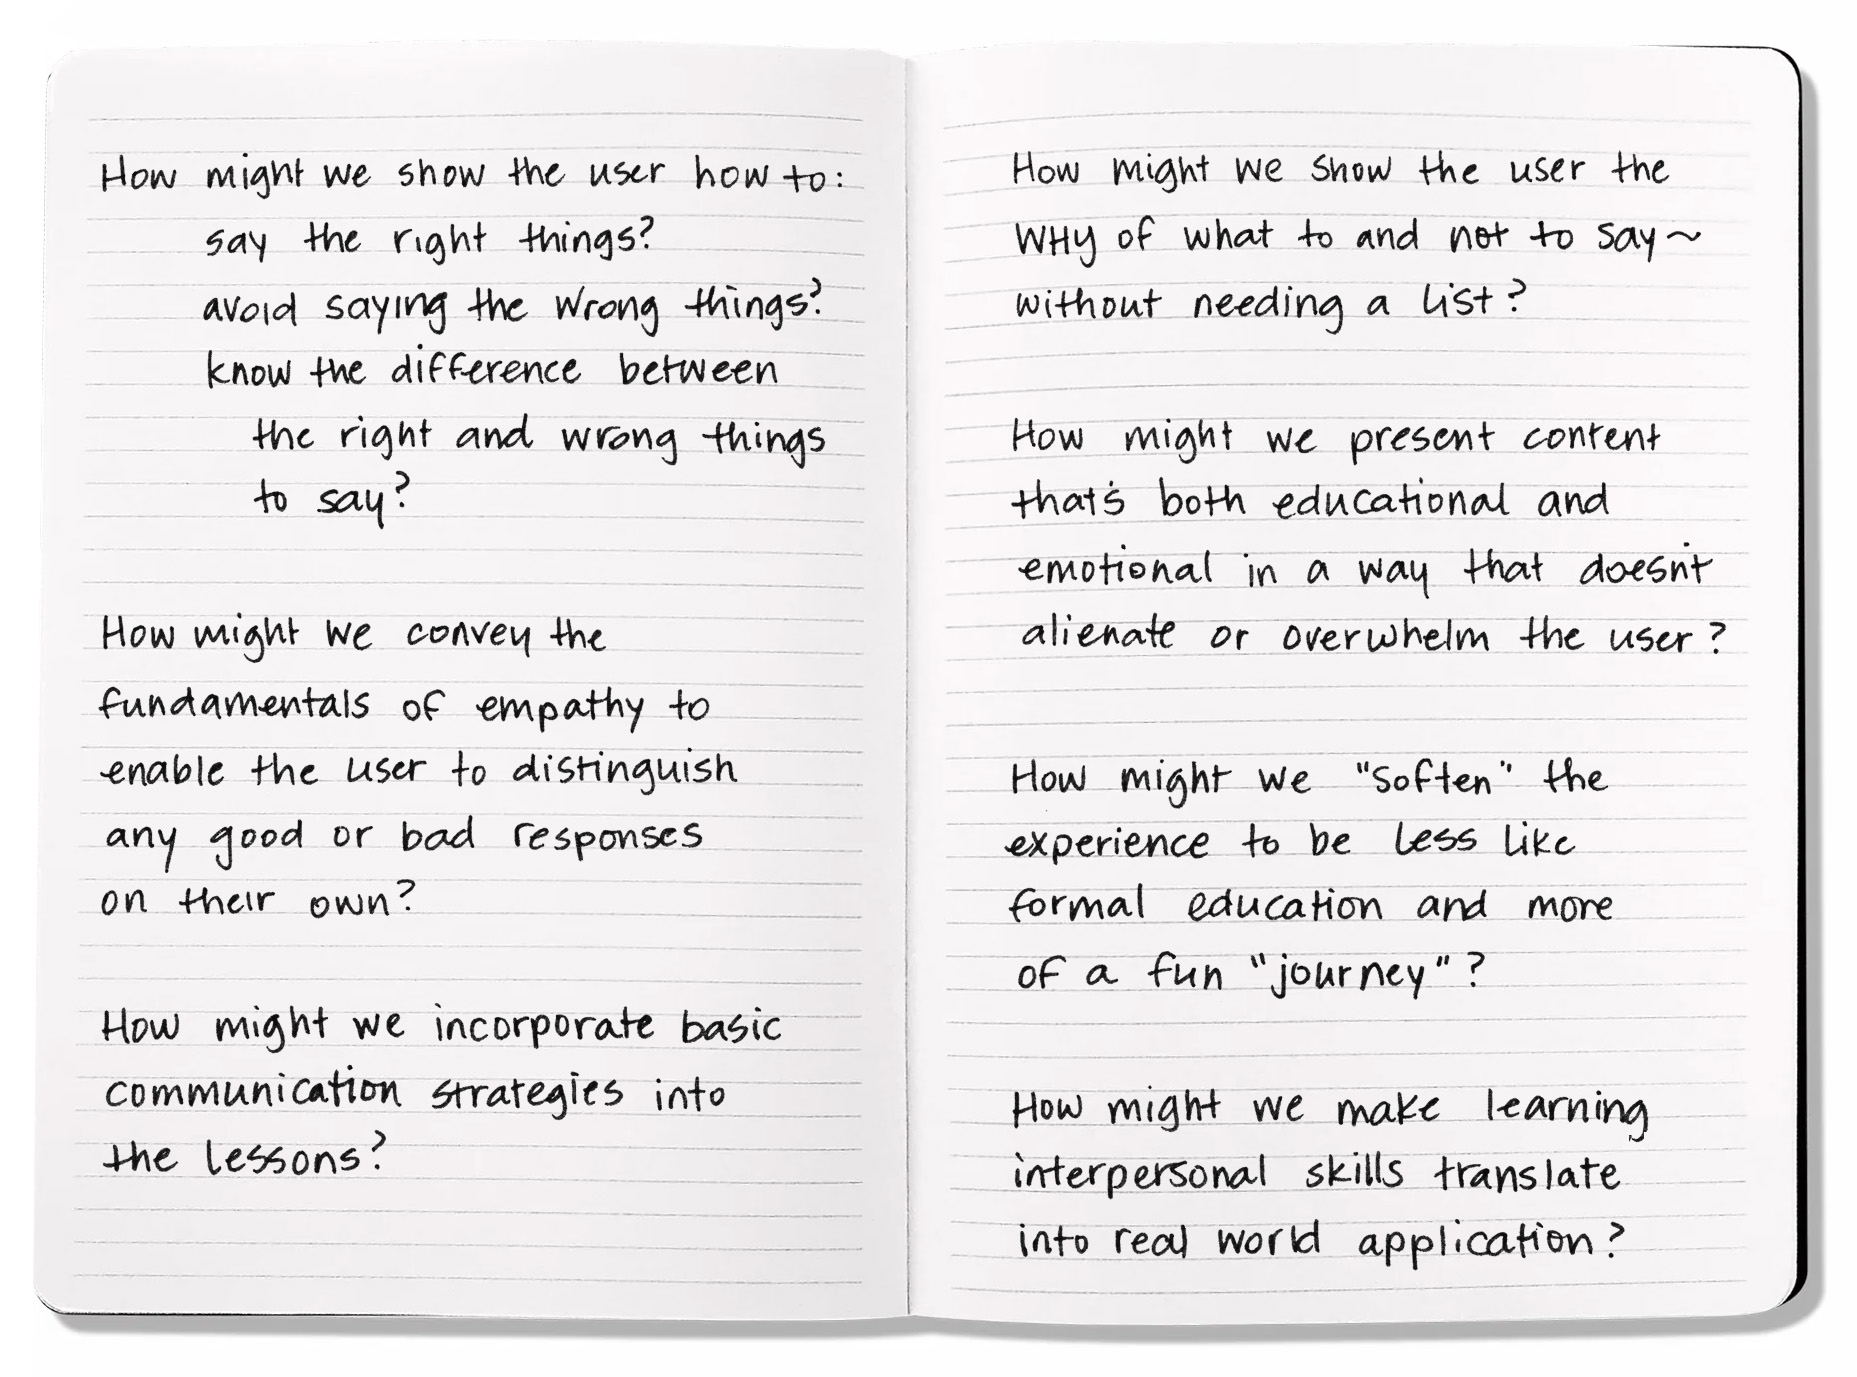 How might we show the user how to:
say the right things?
avoid saying the wrong things?
know the difference between
the right and wrong things
to say?
How might we convey the
fundamentals of empathy to
enable the user to distinguish
any good or bad responses
on their own?
How might we incorporate basic
communication strategies into
the lessons?
How might we show the user the
WHY of what to and not to say~
without needing a list?
How might we present content
that's both educational and
emotional in a way that doesn't
alienate or overwhelm the user?
How might we "soften" the
experience to be less like
formal education and more
of a fun "journey"?
How might we make learning
interpersonal skills translate
into real world application?